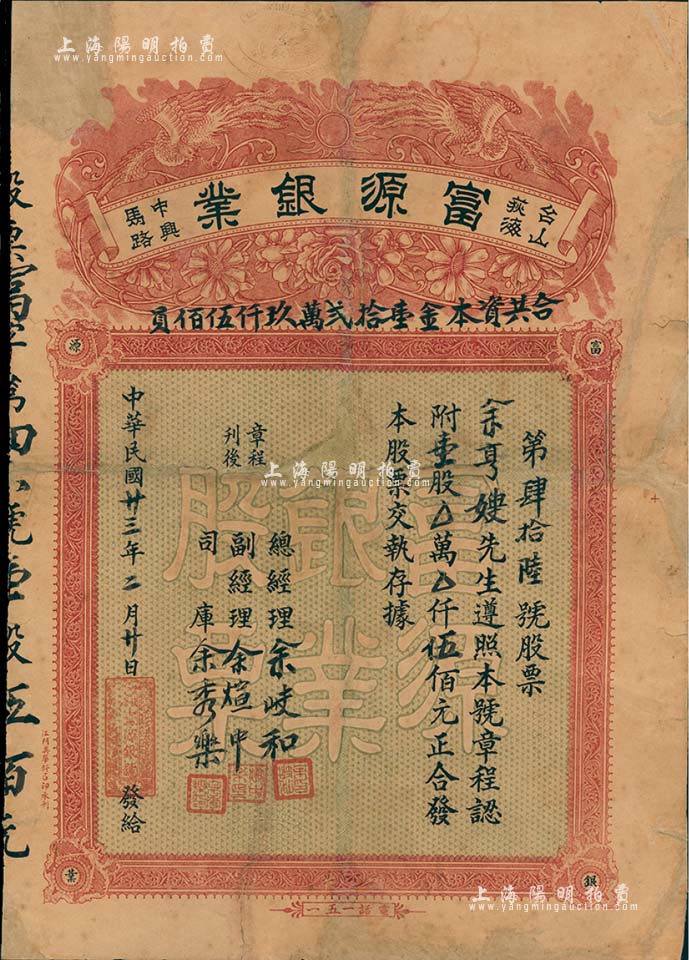 上海陽明拍賣
www.yangmingauction.com
上海陽明拍賣
www.yangmingauction.com
富源銀業
台山
荻海
中興
馬路
合共資本金壹拾弍萬玖仟伍佰員
富
源
銀
業
富源銀業股單
第肆拾陸號股票
余亨嫂先生遵照本號章程認
附壹股△萬△仟伍佰元正合發
本股票交執存據
章程
刊後
總經理余岐和
副經理余煊中
司庫余秀樂
中華民國廿三年二月廿日
發給
電話一五一
上海陽明拍賣
www.yangmingauction.com
上海陽明拍賣
www.yangmingauction.com